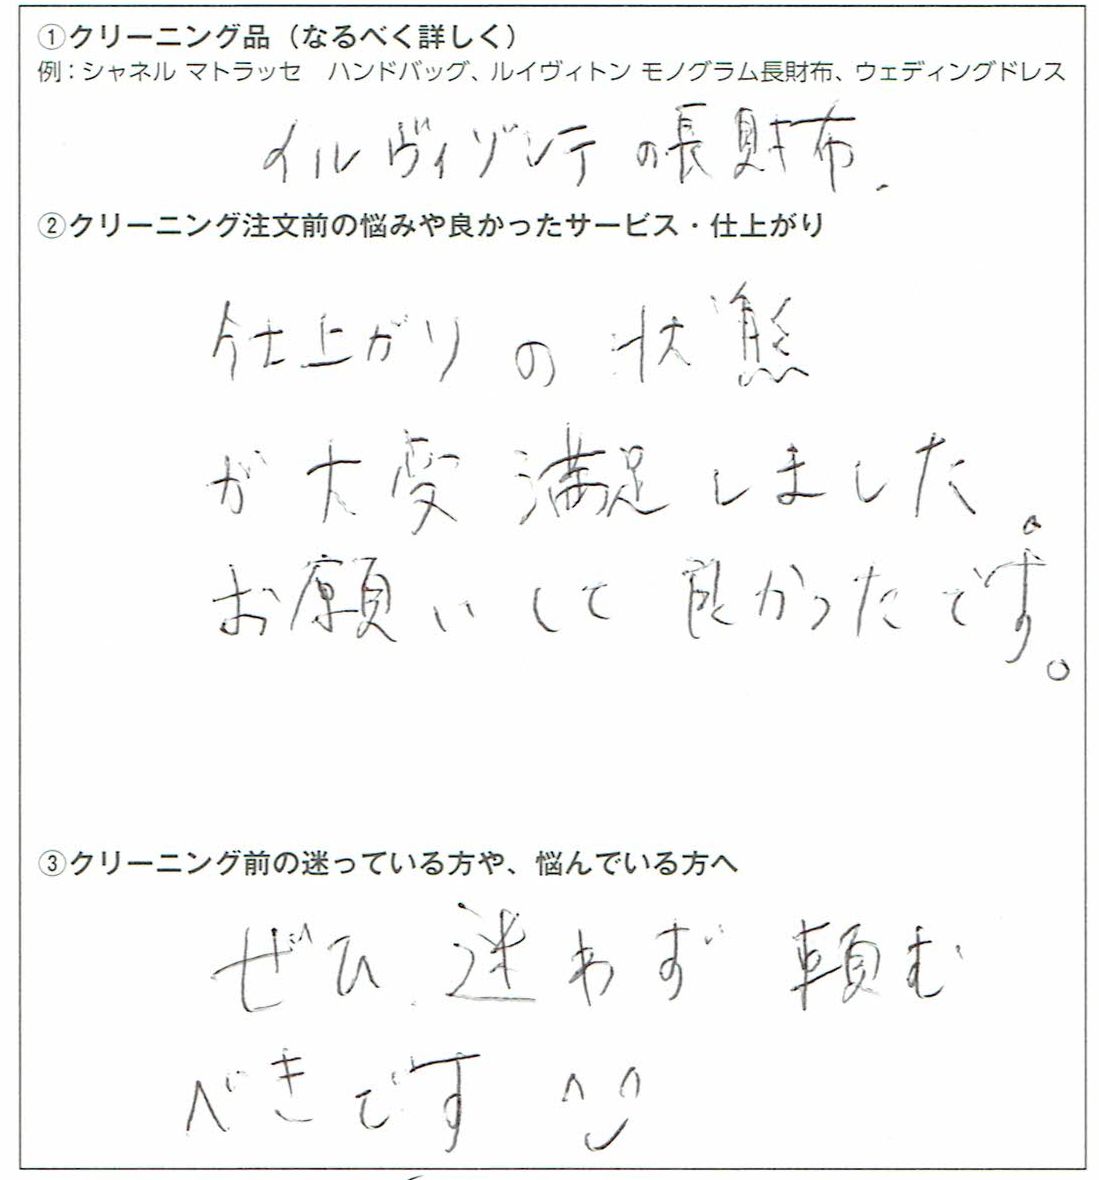 ①クリーニング品（なるべく詳しく）
例：シャネル マトラッセ　ハンドバッグ、ルイヴィトン モノグラム長財布、ウェディングドレス
イルヴィゾンテの長財布.
②クリーニング注文前の悩みや良かったサービス・仕上がり
仕上がりの状態
が大変満足しました。
お願いして良かったです。
③クリーニング前の迷っている方や、悩んでいる方へ
ぜひ迷わず頼む
べきです